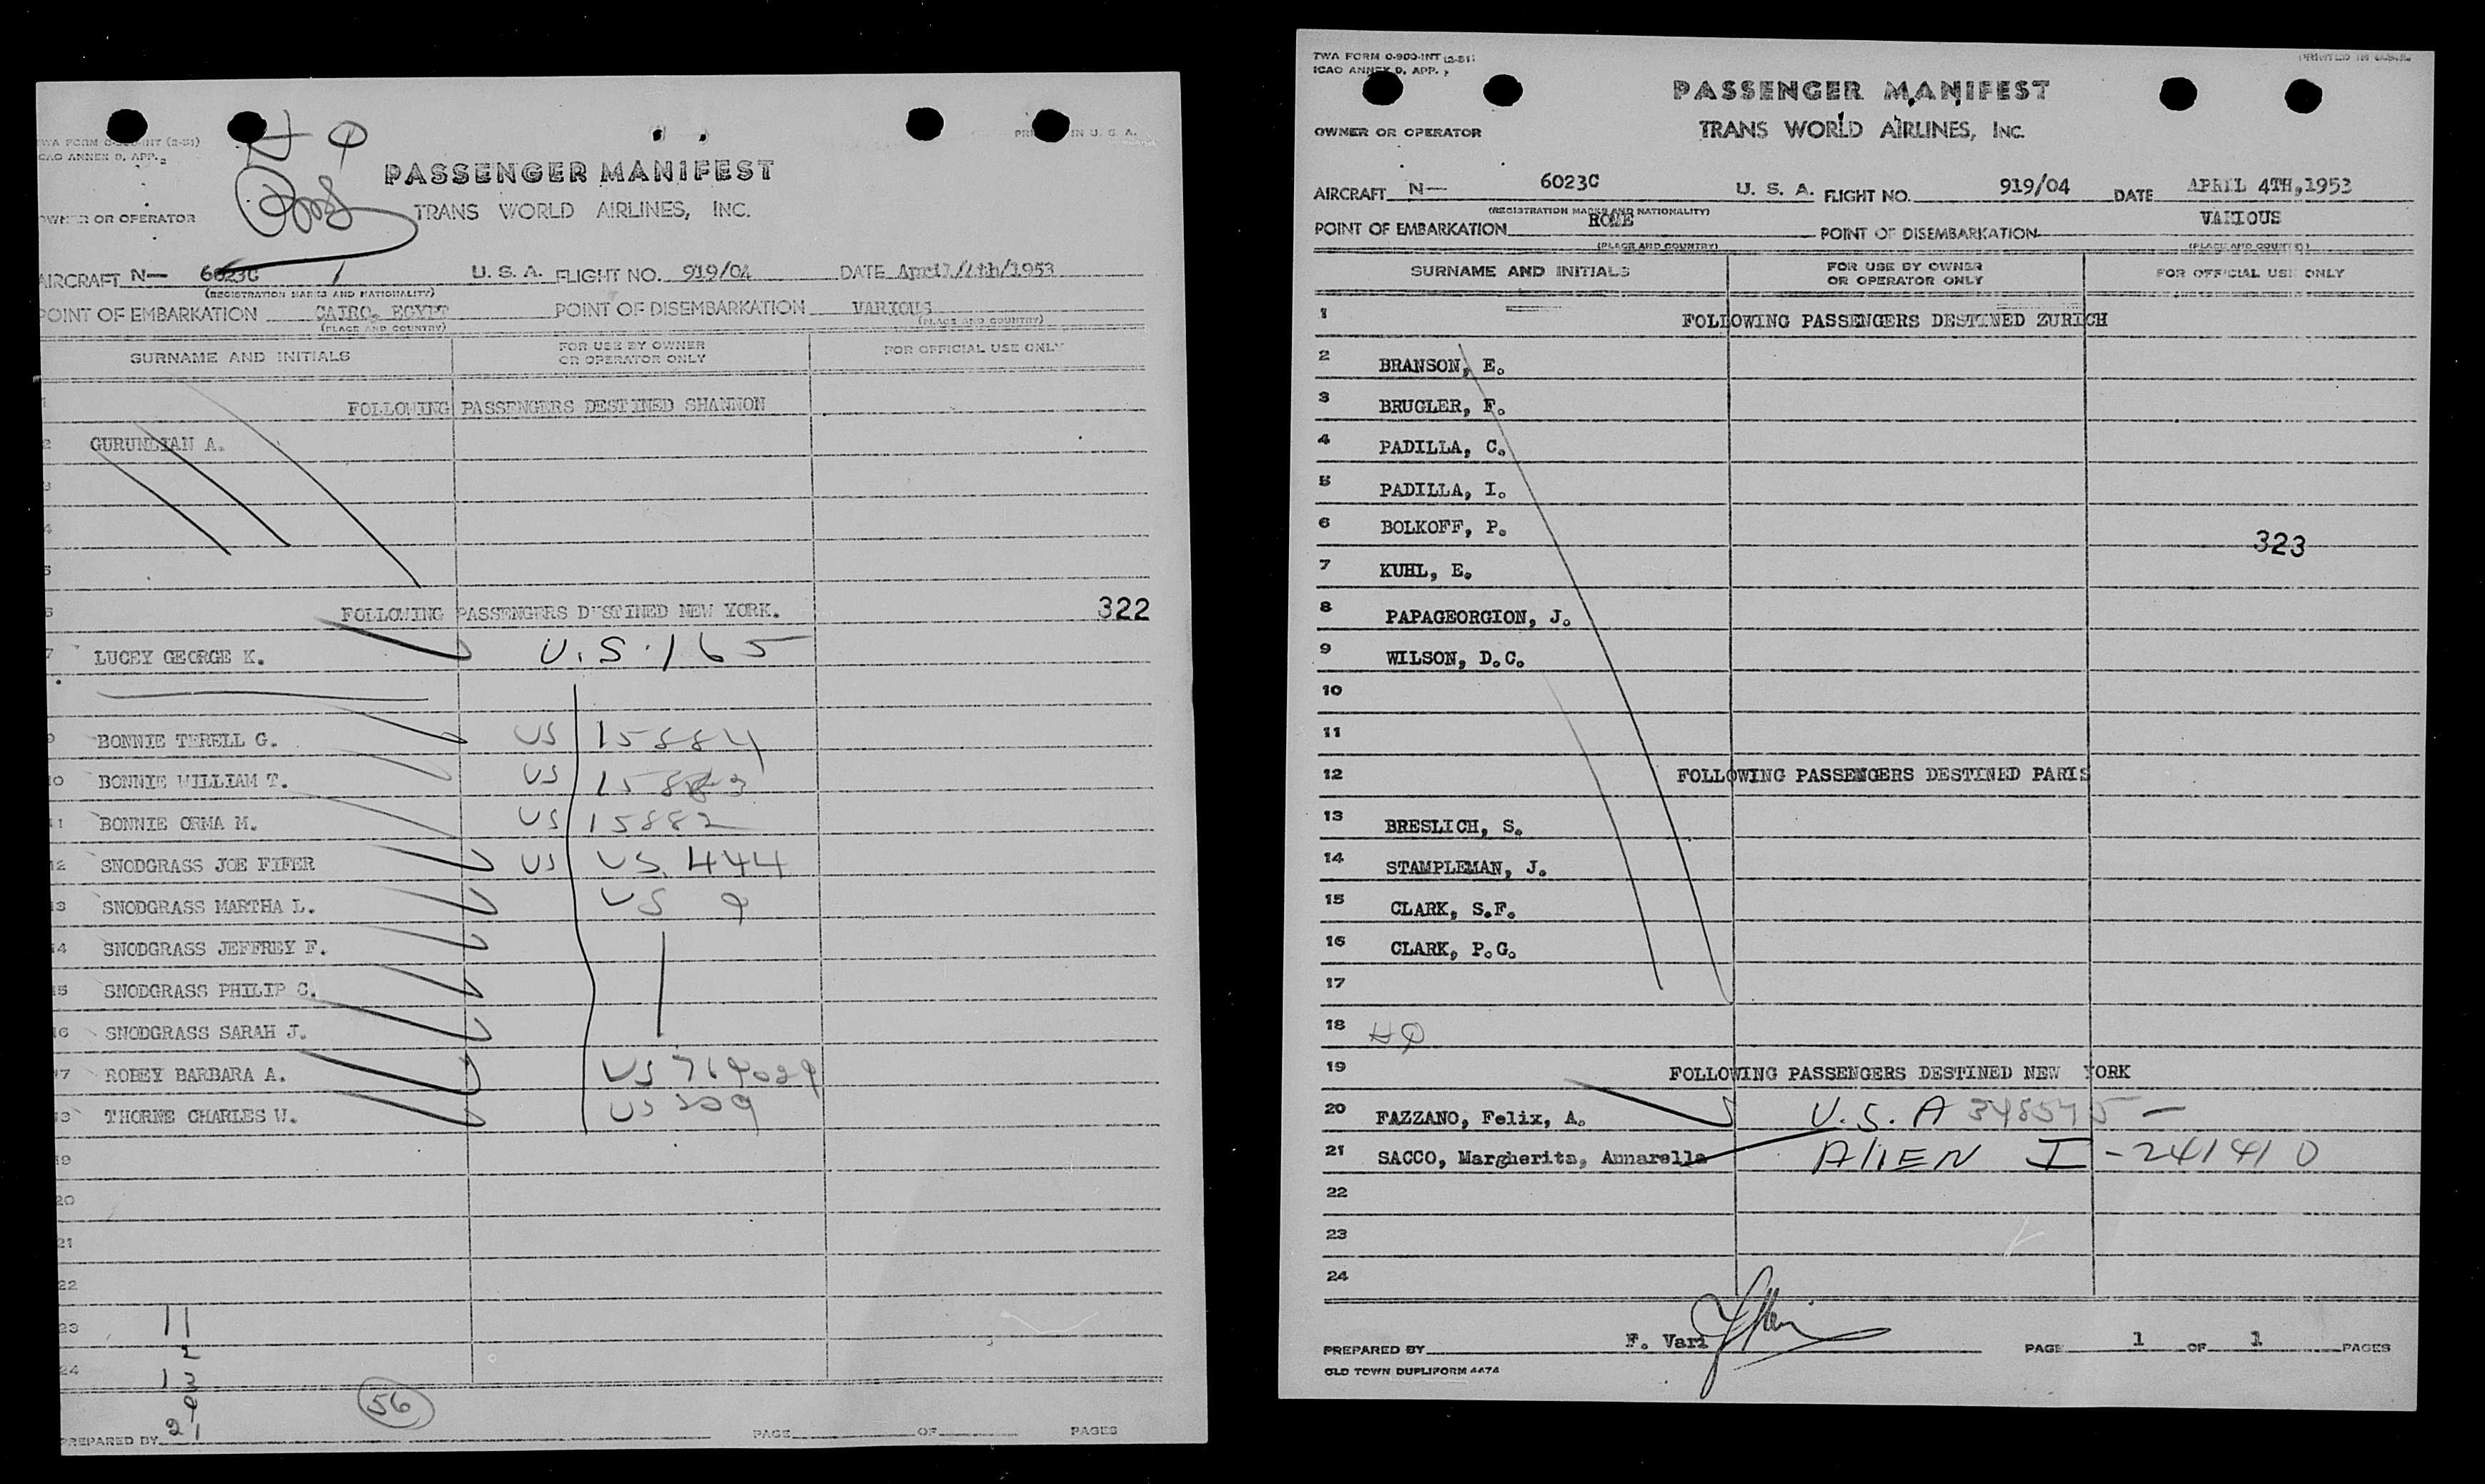 PASSENGER MANIFEST
OWNER OR OPERATOR
TRANS WORLD AIRLINES, INC.
AIRCRAFT N— 6023C U. S. A. FLIGHT NO. 919/04 DATE April/4th/1953
(REGISTRATION MARKS AND NATIONALITY)
POINT OF EMBARKATION CAIRO, EGYPT POINT OF DISEMBARKATION VARIOUS
(PLACE AND COUNTRY) (PLACE AND COUNTRY)
SURNAME AND INITIALS FOR USE BY OWNER OR OPERATOR ONLY FOR OFFICIAL USE ONLY
FOLLOWING PASSENGERS DESTINED SHANNON
2 A.
3
4
5
6 FOLLOWING PASSENGERS DESTINED NEW YORK. 322
7 LUCEY GEORGE K. U.S. 165
9 BONNIE TERELL G. US 15884
10 BONNIE WILLIAM T. US
11 BONNIE ORMA M. US 15882
12 SNODGRASS JOE FIFER US US. 444
13 SNODGRASS MARTHA L. US 9
14 SNODGRASS JEFFREY F.
15 SNODGRASS PHILIP C.
16 SNODGRASS SARAH J.
17 ROBEY BARBARA A. US
18 THORNE CHARLES W. US
19
20
21
22
23 11
2
24 13
21
56
PREPARED BY PAGE OF PAGES
TWA FORM O-900-INT (2-51)
ICAO ANNEX 9, APP. PRINTED IN U.S.A.
PASSENGER MANIFEST
OWNER OR OPERATOR
TRANS WORLD AIRLINES, INC.
AIRCRAFT N— 6023C U. S. A. FLIGHT NO. 919/04 DATE APRIL 4TH,1953
(REGISTRATION MARKS AND NATIONALITY)
POINT OF EMBARKATION ROME POINT OF DISEMBARKATION VARIOUS
(PLACE AND COUNTRY) (PLACE AND COUNTRY)
SURNAME AND INITIALS FOR USE BY OWNER OR OPERATOR ONLY FOR OFFICIAL USE ONLY
1 FOLLOWING PASSENGERS DESTINED ZURICH
2 BRANSON, E.
3 BRUGLER, F.
4 PADILLA, C.
5 PADILLA, I.
6 BOLKOFF, P. 323
7 KUHL, E.
8 PAPAGEORGION, J.
9 WILSON, D.C.
10
11
12 FOLLOWING PASSENGERS DESTINED PARIS
13 BRESLICH, S.
14 STAMPLEMAN, J.
15 CLARK, S.F.
16 CLARK, P.G.
17
18
19 FOLLOWING PASSENGERS DESTINED NEW YORK
20 FAZZANO, Felix, A. U.S.A 348575 —
21 SACCO, Margherita, Annarella ALIEN I-241410
22
23
24
PREPARED BY F. Vari PAGE 1 OF 1 PAGES
OLD TOWN DUPLIFORM 4474